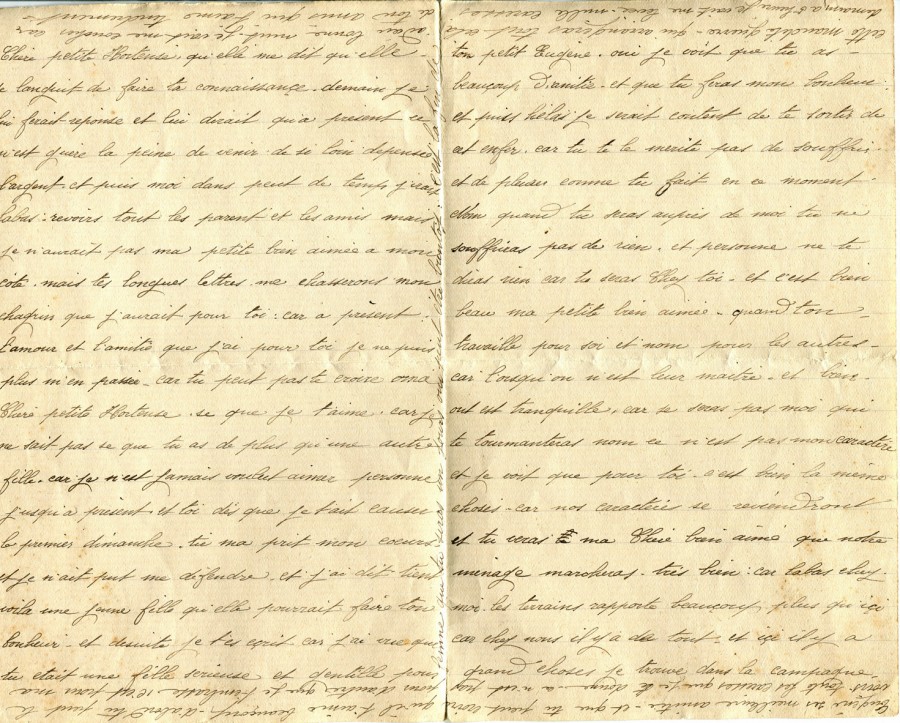 Chère petite Hortense, qu'elle me dit qu'elle
se languit de faire ta connaissance. demain je
lui ferait reponse et lui dirait qu'a présent ce
n'est guère la peine de venir de si loin depense
l'argent. et puis moi dans peut de temps j'irait
labas. revoirs tout les parent et les amis mais
je n'aurait pas ma petite bien aimée a mon
coté. mais tes longues lettres. me chasserons mon
chagrin que j'aurait pour toi. car a présent.
l'amour et l'amitié que j'ai pour toi je ne puis
plus m'en passer. car tu peut pas te croire oma
Chère petite Hortense. se que je t'aime. car je
ne sait pas se que tu as de plus qu'une autre
fille. car je n'est jamais voulet aimer personne
jusqu'a présent et toi dès que je t'ait causer
le premier dimanche. tu ma prit mon coeurs
et je n'ait put me défendre. et j'ai dit tiens
voila une jeune fille qu'elle pourrait faire ton
bonheur. et desuite je t'es ecrit car j'ai vue que
tu était une fille serieuse et gentille pour
ton petit Eugène. oui je voit que tu as
beaucoup D'amitié. et que tu feras mon bonheur.
et puis hélas je serait content de te sortir de
cet enfer. car tu te le merite pas de souffrir.
et de pleure comme tu fait en ce moment.
Non quand tu seras auprès de moi tu ne
souffriras pas de rien. et personne ne te
diras rien car tu seras Chez toi. et c'est bien
beau ma petite bien aimée. quand ton
travaille pour soi et nom pour les autres.
car lorsqu'on n'est leur maitre. et bien.
ont est tranquille. car se seras pas moi qui
te tourmanteras nom ce n'est pas mon caractère
et je voit que pour toi. c'est bien la même
choses. car nos caractères se reviendront
et tu veras ma Chère bien aimé que notre
ménage marcheras. très bien: car labas chez.
moi. les terrains rapporte beaucoup plus qu'ici
car chez nous il y a de tout. et ici il y a
grand choses je trouve dans la campagne